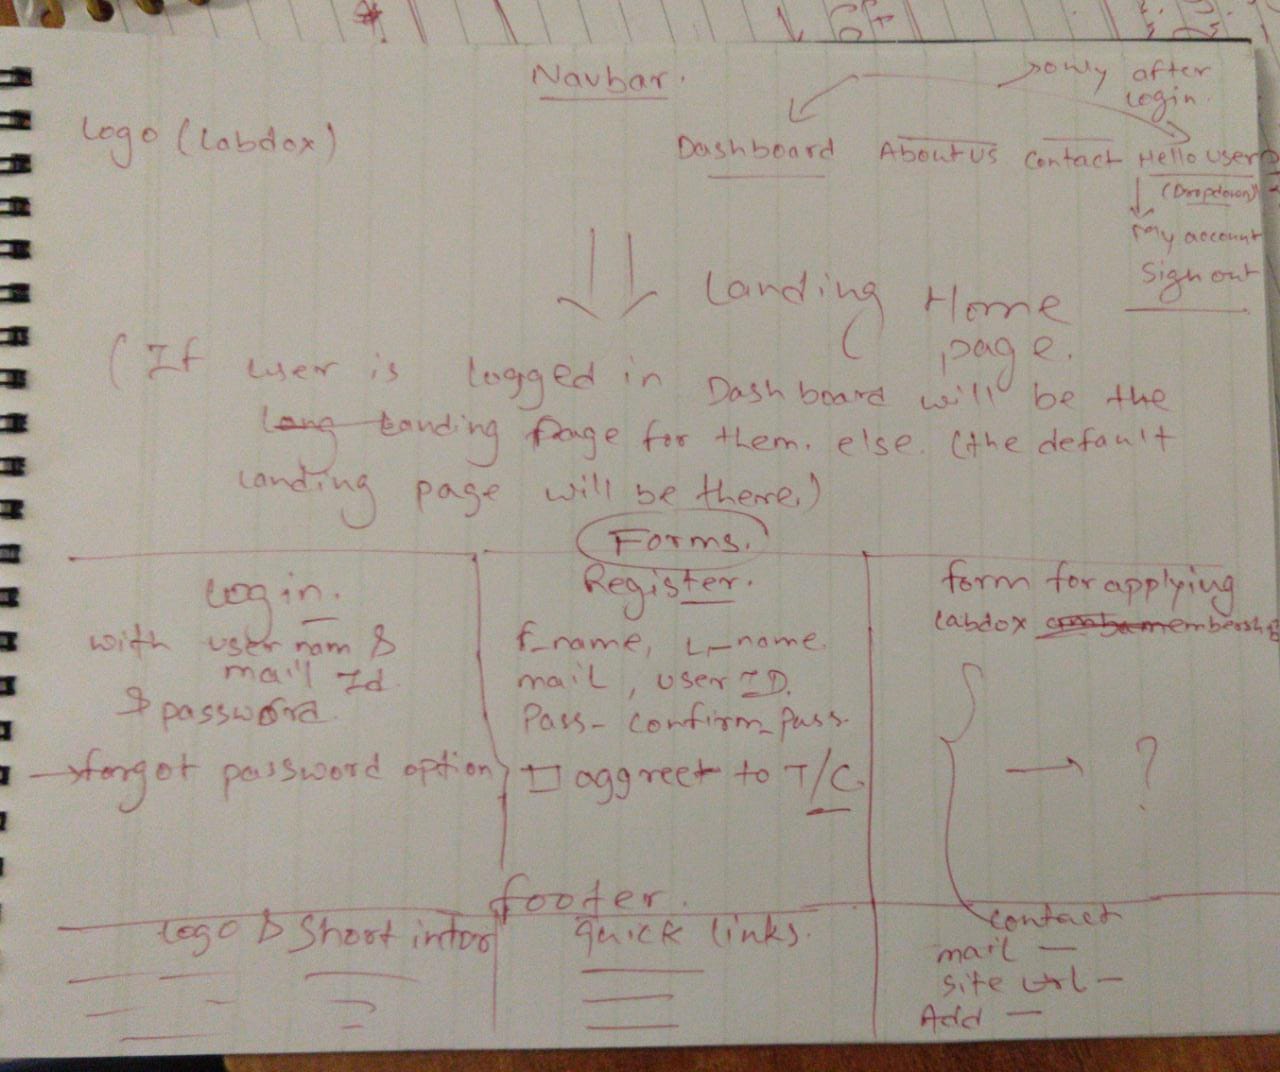 Navbar.
only after
login.
Logo (Labdox)
Dashboard About Us Contact Hello user
(Dropdown)
My account
Sign out
Landing Home
page.
(If user is logged in Dashboard will be the
Lang Landing Page for them. else. (the default
landing page will be there.)
Forms.
Login.
with user nam &
mail Id
& password.
→forgot password option
Register.
f_name, L_name.
mail, user ID.
Pass- confirm_pass.
aggreet to T/C.
form for applying
labdox membership
→ ?
footer.
Logo & Short intor
quick links.
contact
mail —
site url —
Add —